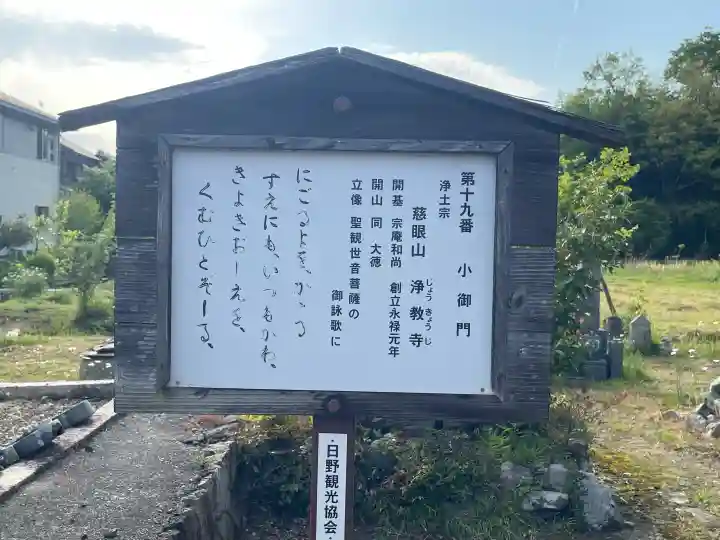 第十九番　小御門
浄土宗
慈眼山　浄教寺
じょうきょうじ
開基　宗庵和尚　創立永禄元年
開山　同　大徳
立像　聖観世音菩薩の
御詠歌に
にごるよを、かゝる
すえにも、いつもかわ、
きよきおしえを、
くむひとぞしる、
日野観光協会